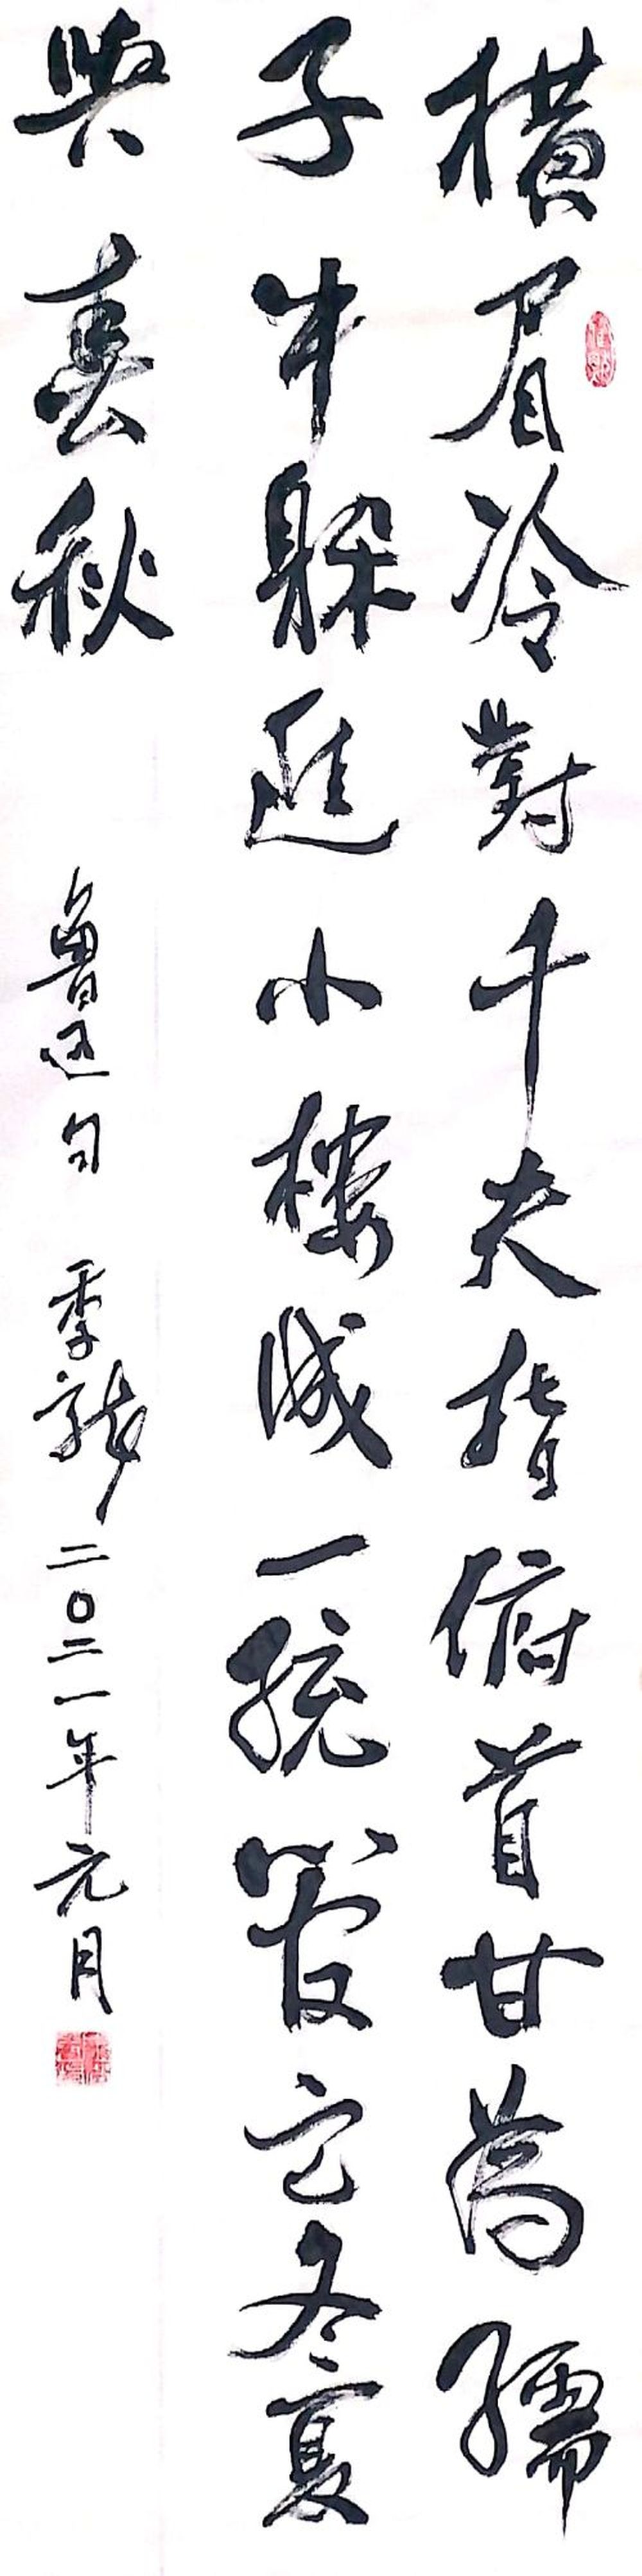 橫眉冷對千夫指俯首甘為孺
子牛躲進小樓成一統管它冬夏
與春秋
魯迅句 季龍 二〇二一年元月